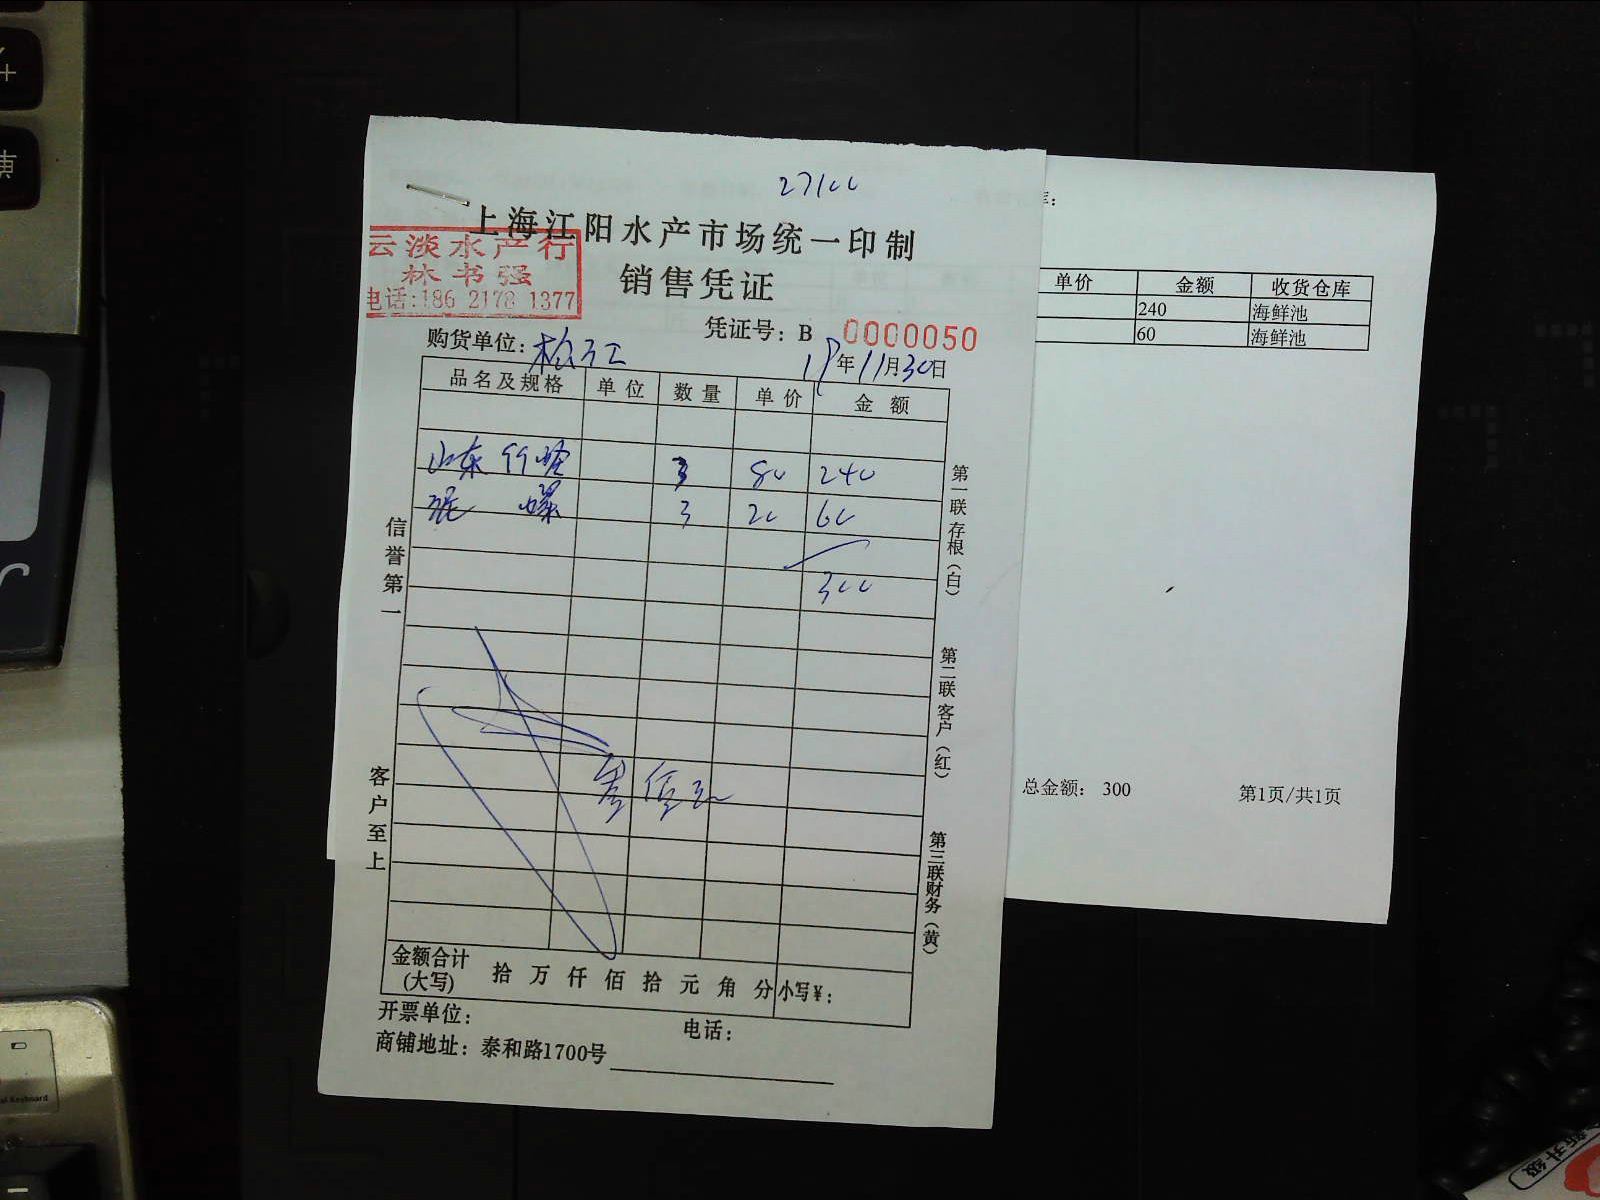 27100
上海江阳水产市场统一印制
云淡水产行
林书强
电话:186 2178 1377
销售凭证
凭证号：B 0000050
购货单位：松江
18年11月30日
品名及规格 单位 数量 单价 金额
山东 3 80 240
螺 3 20 60
300
信誉第一
客户至上
第一联存根（白）
第二联客户（红）
第三联财务（黄）
金额合计
(大写) 拾 万 仟 佰 拾 元 角 分 小写¥：
开票单位： 电话：
商铺地址：泰和路1700号
单价 金额 收货仓库
240 海鲜池
60 海鲜池
总金额： 300 第1页/共1页